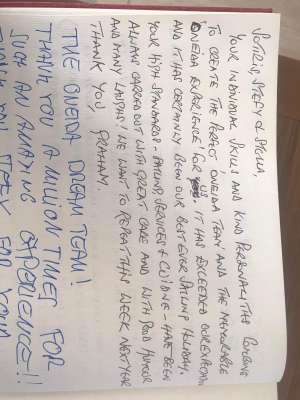 SOTIRIS, STEFY & STELLA,
YOUR INDIVIDUAL SKILLS AND KIND PERSONALITIES COMBINE
TO CREATE THE PERFECT ONEIDA TEAM, AND THE MEMORABLE
'ONEIDA EXPERIENCE' FOR US. IT HAS EXCEEDED OUR EXPECTATIONS
AND IT HAS CERTAINLY BEEN OUR BEST EVER SAILING HOLIDAY.
YOUR HIGH STANDARDS - SAILING, SERVICES & CUISINE - HAVE BEEN
ALWAYS CARRIED OUT WITH GREAT CARE AND WITH GOOD HUMOUR
AND MANY LAUGHS. WE WANT TO REPEAT THIS WEEK NEXT YEAR
THANK YOU, GRAHAM.
THE ONEIDA DREAM TEAM!
THANK YOU A MILLION TIMES FOR
SUCH AN AMAZING EXPERIENCE!!
THANK YOU STEFY FOR YOUR